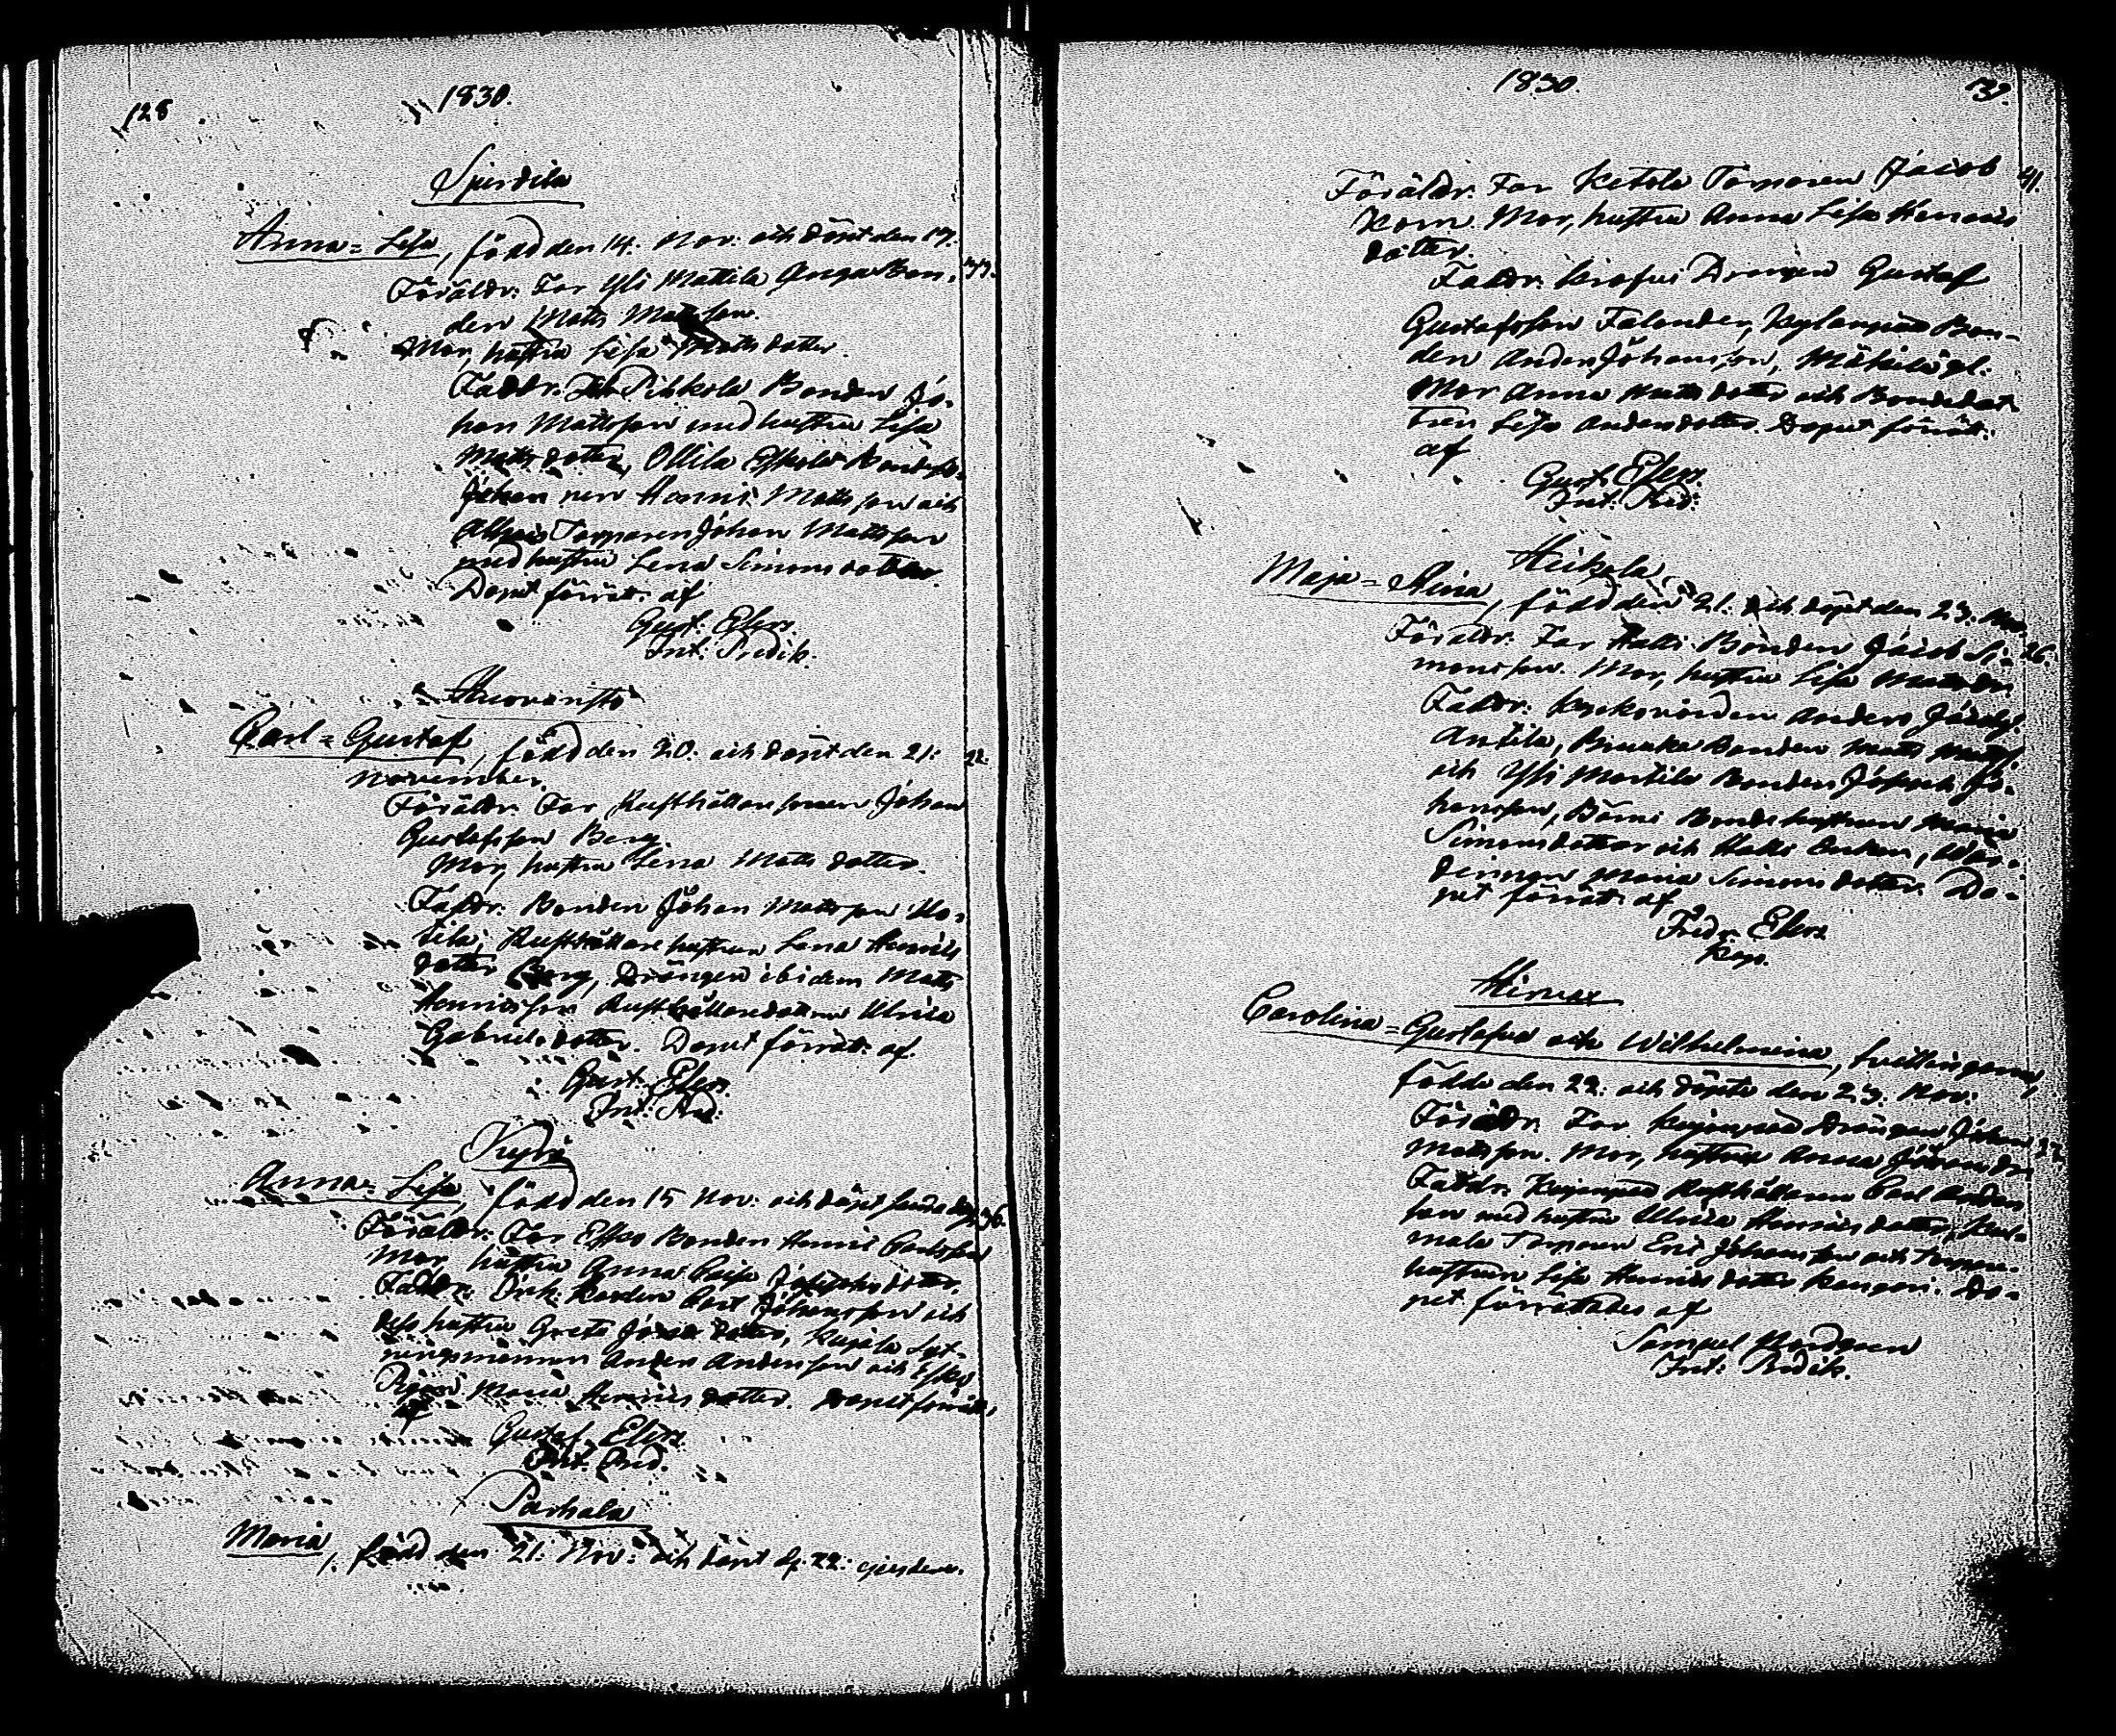 128
1830.
Spurdila
Anna=Lisa, född den 14. Nov: och döpt den 17.
Föräldr: Far Yli Mattila Unga Bon-
33.
den Matts Mattsson.
Mor, hustru Lisa Matts dotter.
Faddr: Pihkola Bonden Jo-
han Mattsson med hustru Lisa
Matts dotter, Ollila
Johan Henric Mattsson och
Torparen Johan Mattsson
med hustru Lena Simons dotter.
Dopet förrätt. af
Gust: Elers.
Int: Predik.
Carl=Gustaf, född den 20. och döpt den 21:
22.
November.
Föräldr: Far Rusthållare sonen Johan
Gustafsson Berg
Mor, hustru Lena Matts dotter.
Faddr: Bonden Johan Mattsson
tila, Rusthållare hustrun Lena Henrics
dotter Berg, Drängen ibidem Matts
Henricsson Rusthållaredottren Ulrica
Gabriels dotter. Dopet förrätt: af.
Gust: Elers
Int: Pred:
Kyrö
Anna=Lisa, född den 15 Nov: och döpt samma dag.
36.
Föräldr: Far Eskos Bonden Henric Carlsson
Mor, hustru Anna Caisa Josephs dotter.
Faddr: Bonden Carl Johansson och
dess hustru Greta dotter, Kujala
Anders Andersson och Eskos
Pigan Maria Henrics dotter. Dopet förrätt:
af
Gustaf Elers
Int: Pred.
Parhala
Maria, född den 21: Nov: och döpt d. 22: ejusdem.
1830.
Föräldr: Far Ketola Torparen Jacob
41.
Korn. Mor, hustru Anna Lisa Henrics
dotter.
Faddr: Drängen Gustaf
Gustafsson Falander, Kylänpää Bon-
den Anders Johansson, Mäkilä gl.
Mor Anna Matts dotter och Bondedot-
tren Lisa Anders dotter. Dopet förrät:
af
Gust: Elers.
Int: Pred:
Heikola
Maja=Stina, född den 21: och döpt den 23: Nov.
Föräldr: Far Halli Bonden Jacob Si-
26.
monsson. Mor, hustru Lisa Matts dr.
Faddr: Kyrkovärden Anders Jacobs.
Antila, Bonden Matts Matts.
och Yli Martila Bonden Joseph Jo-
hansson, Bonde hustrun Maria
Simons dotter och Halli Enkan,
dinnan Maria Simons dotter. Do-
pet förrätt: af
Fredr: Elers
Kap.
Hirvax
Carolina=Gustafva och Wilhelmina, tvillingarna,
födde den 22: och döpte den 23: Nov:
Föräldr: Far Keijanpää Drängen Johan
Matsson. Mor, hustru Anna Johans dr.
Faddr: Keijanpää Rusthållaren Carl Anders
son med hustru Ulrica Henrics dotter,
Torparen Eric Johansson och Torpare-
hustrun Lisa Henrics dotter Kangari. Do-
pet förrättades af
Samuel Nordgren
Int: Predik.